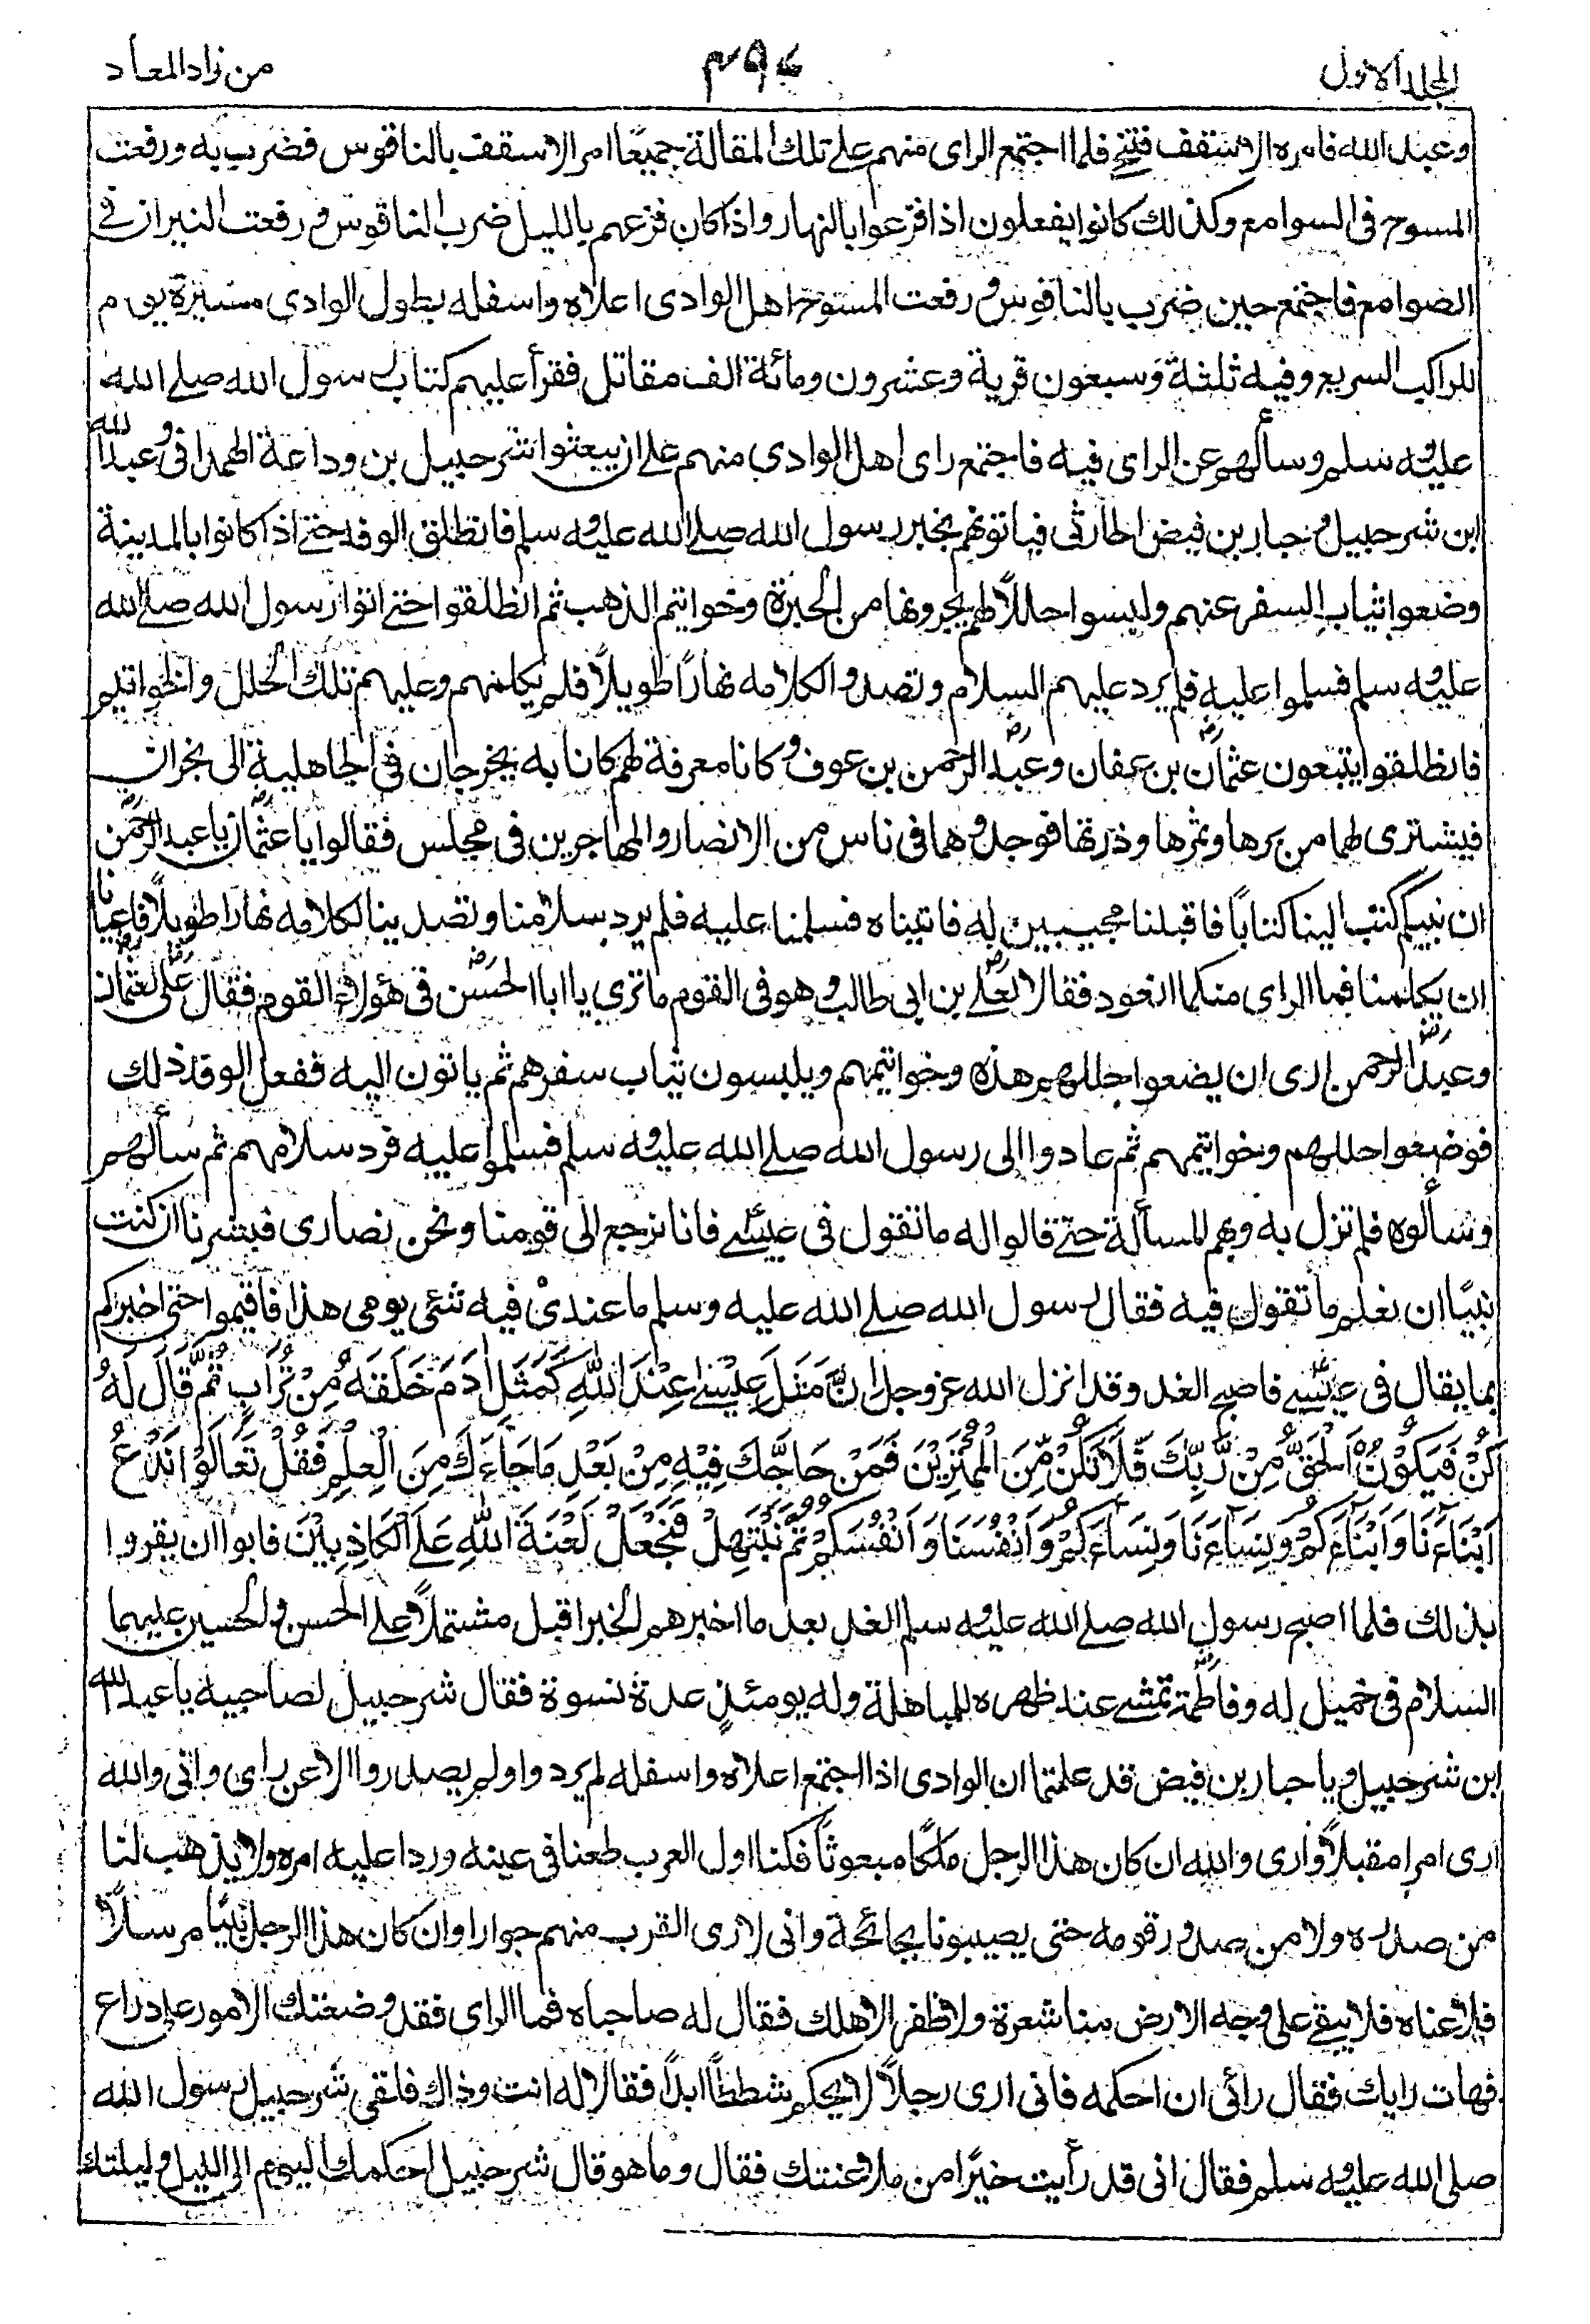 المجلد الاول
من زاد المعاد
وعبد الله فامره الاسقف فتنحى فلما اجتمع الراى منهم على تلك المقالة جميعًا امر الاسقف بالناقوس فضرب به ورفعت
المسوح فى السوامع وكذلك كانوا يفعلون اذا فزعوا بالنهار واذا كان فزعهم بالليل ضرب الناقوس ورفعت النيران فى
الصوامع فاجتمع حين ضرب بالناقوس ورفعت المسوح اهل الوادى اعلاه واسفله بطول الوادى مسيرة يوم
للراكب السريع وفيه ثلثة وسبعون قرية وعشرون ومائة الف مقاتل فقرأ عليهم كتاب رسول الله صلى الله
عليه وسلم وسألهم عن الراى فيه فاجتمع راى اهل الوادى منهم على ان يبعثوا شرحبيل بن وداعة الهمدانى وعبد الله
ابن شرحبيل وجبار بن فيض الحارثى فياتونهم بخبر رسول الله صلى الله عليه وسلم فانطلق الوفد حتى اذا كانوا بالمدينة
وضعوا ثياب السفر عنهم ولبسوا حللاً لهم يجرونها من الحبرة وخواتيم الذهب ثم انطلقوا حتى اتوا رسول الله صلى الله
عليه وسلم فسلموا عليه فلم يرد عليهم السلام وتصدوا لكلامه نهارًا طويلاً فلم يكلمهم وعليهم تلك الحلل والخواتيم
فانطلقوا يتبعون عثمان بن عفان وعبد الرحمن بن عوف وكانا معرفة لهم كانا به يخرجان فى الجاهلية الى نجران
فيشترى لهما من برها وثمرها وذرتها فوجدوهما فى ناس من الانصار والمهاجرين فى مجلس فقالوا يا عثمان يا عبد الرحمن
ان نبيكم كتب الينا كتابًا فاقبلنا مجيبين له فاتيناه فسلمنا عليه فلم يرد سلامنا وتصدينا لكلامه نهارا طويلاً فاعيانا
ان يكلمنا فما الراى منكما انعود فقالا لعلى بن ابى طالب وهو فى القوم ما ترى يا ابا الحسن فى هؤلاء القوم فقال على لعثمان
وعبد الرحمن ارى ان يضعوا حللهم هذه وخواتيمهم ويلبسون ثياب سفرهم ثم ياتون اليه ففعل الوفد ذلك
فوضعوا حللهم وخواتيمهم ثم عادوا الى رسول الله صلى الله عليه وسلم فسلموا عليه فرد سلامهم ثم سألهم
وسألوه فلم تزل به وبهم المسألة حتى قالوا له ما تقول فى عيسى فانا نرجع الى قومنا ونحن نصارى فيبشرنا ان كنت
نبيًا ان نعلم ما تقول فيه فقال رسول الله صلى الله عليه وسلم ما عندى فيه شئى يومى هذا فاقيموا حتى اخبركم
بما يقال فى عيسى فاصبح الغد وقد انزل الله عز وجل اِنَّ مَثَلَ عِيْسٰى عِنْدَ اللّٰهِ كَمَثَلِ اٰدَمَ خَلَقَهٗ مِنْ تُرَابٍ ثُمَّ قَالَ لَهٗ
كُنْ فَيَكُوْنُ اَلْحَقُّ مِنْ رَّبِّكَ فَلَا تَكُنْ مِّنَ الْمُمْتَرِيْنَ فَمَنْ حَاجَّكَ فِيْهِ مِنْ بَعْدِ مَا جَآءَكَ مِنَ الْعِلْمِ فَقُلْ تَعَالَوْا نَدْعُ
اَبْنَآءَنَا وَاَبْنَآءَكُمْ وَنِسَآءَنَا وَنِسَآءَكُمْ وَاَنْفُسَنَا وَاَنْفُسَكُمْ ثُمَّ نَبْتَهِلْ فَنَجْعَلْ لَعْنَةَ اللّٰهِ عَلَى الْكَاذِبِيْنَ فابوا ان يقروا
بذلك فلما اصبح رسول الله صلى الله عليه وسلم الغد بعد ما اخبرهم الخبر اقبل مشتملاً على الحسن والحسين عليهما
السلام فى خميل له وفاطمة تمشى عند ظهره للمباهلة وله يومئذٍ عدة نسوة فقال شرحبيل لصاحبيه يا عبد الله
ابن شرحبيل ويا جبار بن فيض قد علمتما ان الوادى اذا اجتمع اعلاه واسفله لم يردوا ولم يصدروا الا عن راى وانى والله
ارى امرا مقبلاً وارى والله ان كان هذا الرجل ملكًا مبعوثًا فكنا اول العرب طعنا فى عينه وردا عليه امره ولا يذهب لنا
من صدره ولا من صدور قومه حتى يصيبونا بجائحة وانى لارى القرب منهم جوارا وان كان هذا الرجل نبيًا مرسلاً
فلاعناه فلا يبقى على وجه الارض منا شعرة ولا ظفر الا هلك فقال له صاحباه فما الراى فقد وضعتك الامور على ذراع
فهات رايك فقال رائى ان احكمه فانى ارى رجلاً لا يحكم شططًا ابدًا فقالا له انت وذاك فلقى شرحبيل رسول الله
صلى الله عليه وسلم فقال انى قد رأيت خيرًا من ملاعنتك فقال وما هو قال شرحبيل احكمك اليوم الى الليل وليلتك